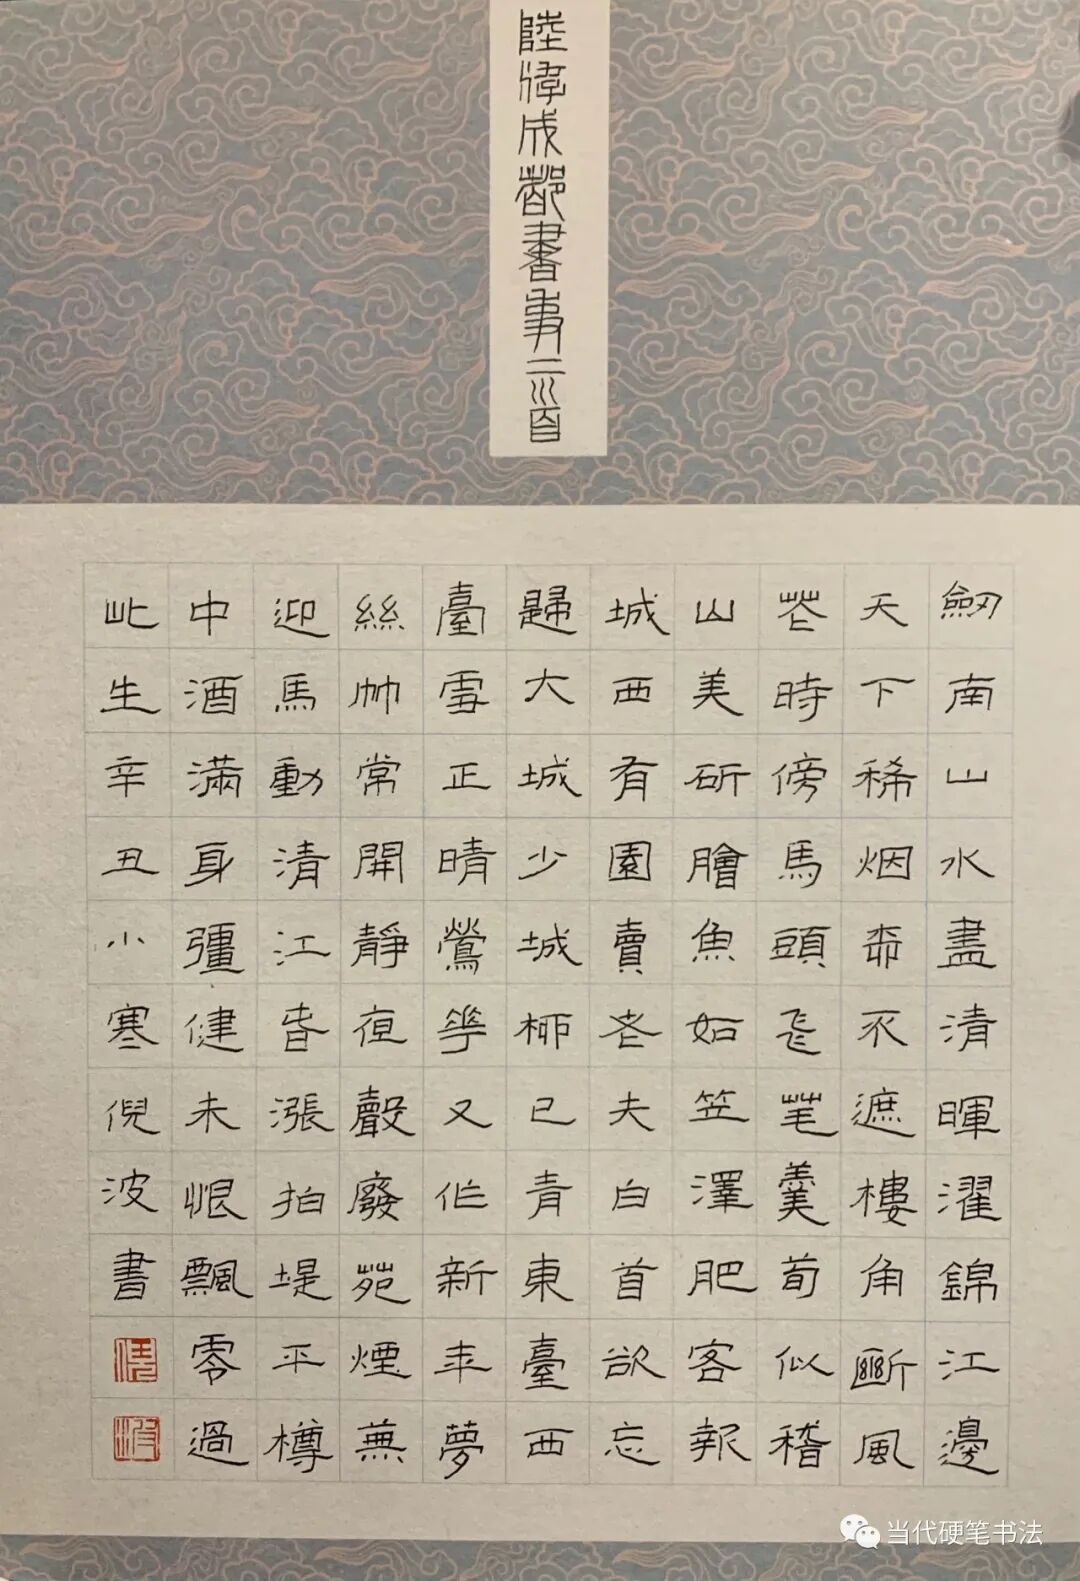 陸游成都書事二首
劒南山水盡清暉濯錦江邊
天下稀烟柳不遮樓角斷風
花時傍馬頭飛芼羹筍似稽
山美斫膾魚如笠澤肥客報
城西有園賣老夫白首欲忘
歸大城少城柳已青東臺西
臺雪正晴鶯花又作新年夢
絲竹常聞靜夜聲廢苑煙蕪
迎馬動清江春漲拍堤平樽
中酒滿身彊健未恨飄零過
此生辛丑小寒倪波書
倪
波
当代硬笔书法